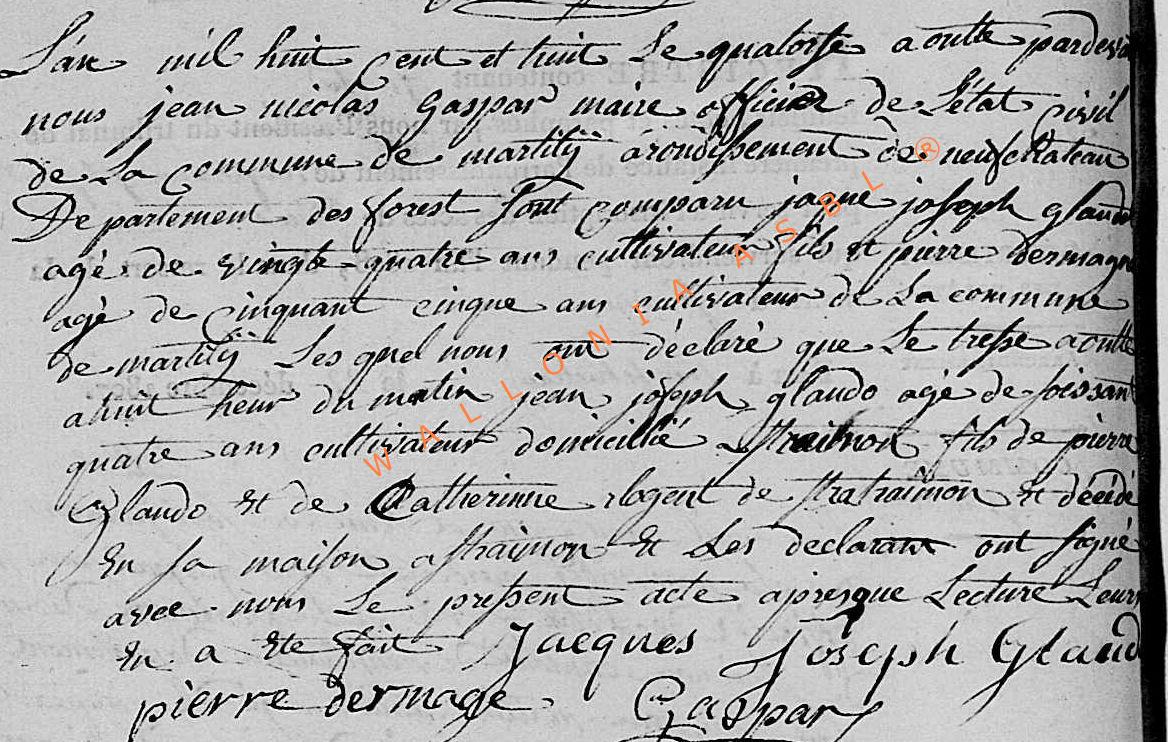 L'an mil huit Cent et huit Le quatorse aoutte pardeva
nous jean nicolas Gaspar maire officier de L'état Civil
de La Commune de martilÿ árondissement de neufchateau
Departement des forest Sont Comparu jaque joseph glaudo
agé de vingte quatre ans cultivateur fils et pierre dermage
agé de Cinquant cinque ans cultivateur de La commune
de martilÿ Les quel nous ont déclaré que Le tresse aoutte
a huit heur du matin jean joseph glaudo agé de soissant
quatre ans cultivateur domicilié a straimon fils de pierre
Glaudo et de Catherinne rlogent de straimon et décédé
En sa maison a straimon et Les declarant ont signé
avec nous Le present acte apresque Lecture Leurs
En a ete fait Jacques Joseph Glaud
pierre dermage. Gaspar
WALLONIA ASBL ®